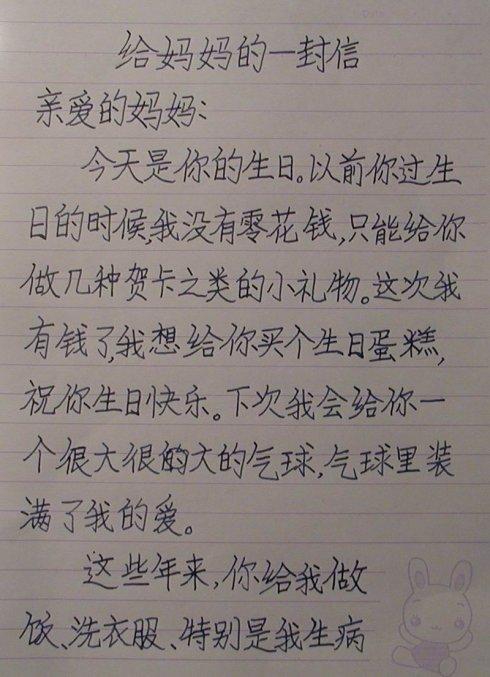 给妈妈的一封信
亲爱的妈妈：
今天是你的生日。以前你过生
日的时候，我没有零花钱，只能给你
做几种贺卡之类的小礼物。这次我
有钱了，我想给你买个生日蛋糕，
祝你生日快乐。下次我会给你一
个很大很的大的气球，气球里装
满了我的爱。
这些年来，你给我做
饭、洗衣服、特别是我生病